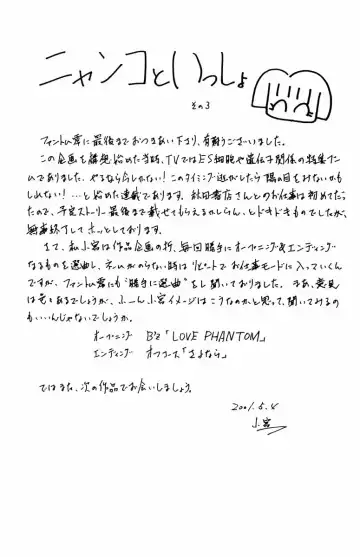 ニャンコといっしょ
その3
ファントム零に最後までおつきあい下さり、有難うございました。
この企画を構想し始めた当時、TVではES細胞や遺伝子関係の特集だ
ひでありました。やるなら今しかない！このタイミング逃がしたら陽の目をみないかも
しれない！…と始めた連載であります。秋田書店さんとのお仕事は初めてだっ
たので、予定ストーリー最後まで載せてもらえるのかしらん、とドキドキものでしたが、
無事終了してホッとしております。
さて、私小宮は作品企画の折、毎回勝手にオープニング・エンディング
なるものを選曲し、ネームがのらない時はリピートでお仕事モードに入っていくん
ですが、ファントム零にも"勝手に選曲"をし聞いておりました。まあ、意見
は色々あるでしょうが、ふーん小宮イメージはこうなのかと思って、聞いてみるの
もいいんじゃないでしょうか。
オープニング B'z「LOVE PHANTOM」
エンディング オフコース「さよなら」
ではまた、次の作品でお会いしましょう。
2001.5.8
小宮